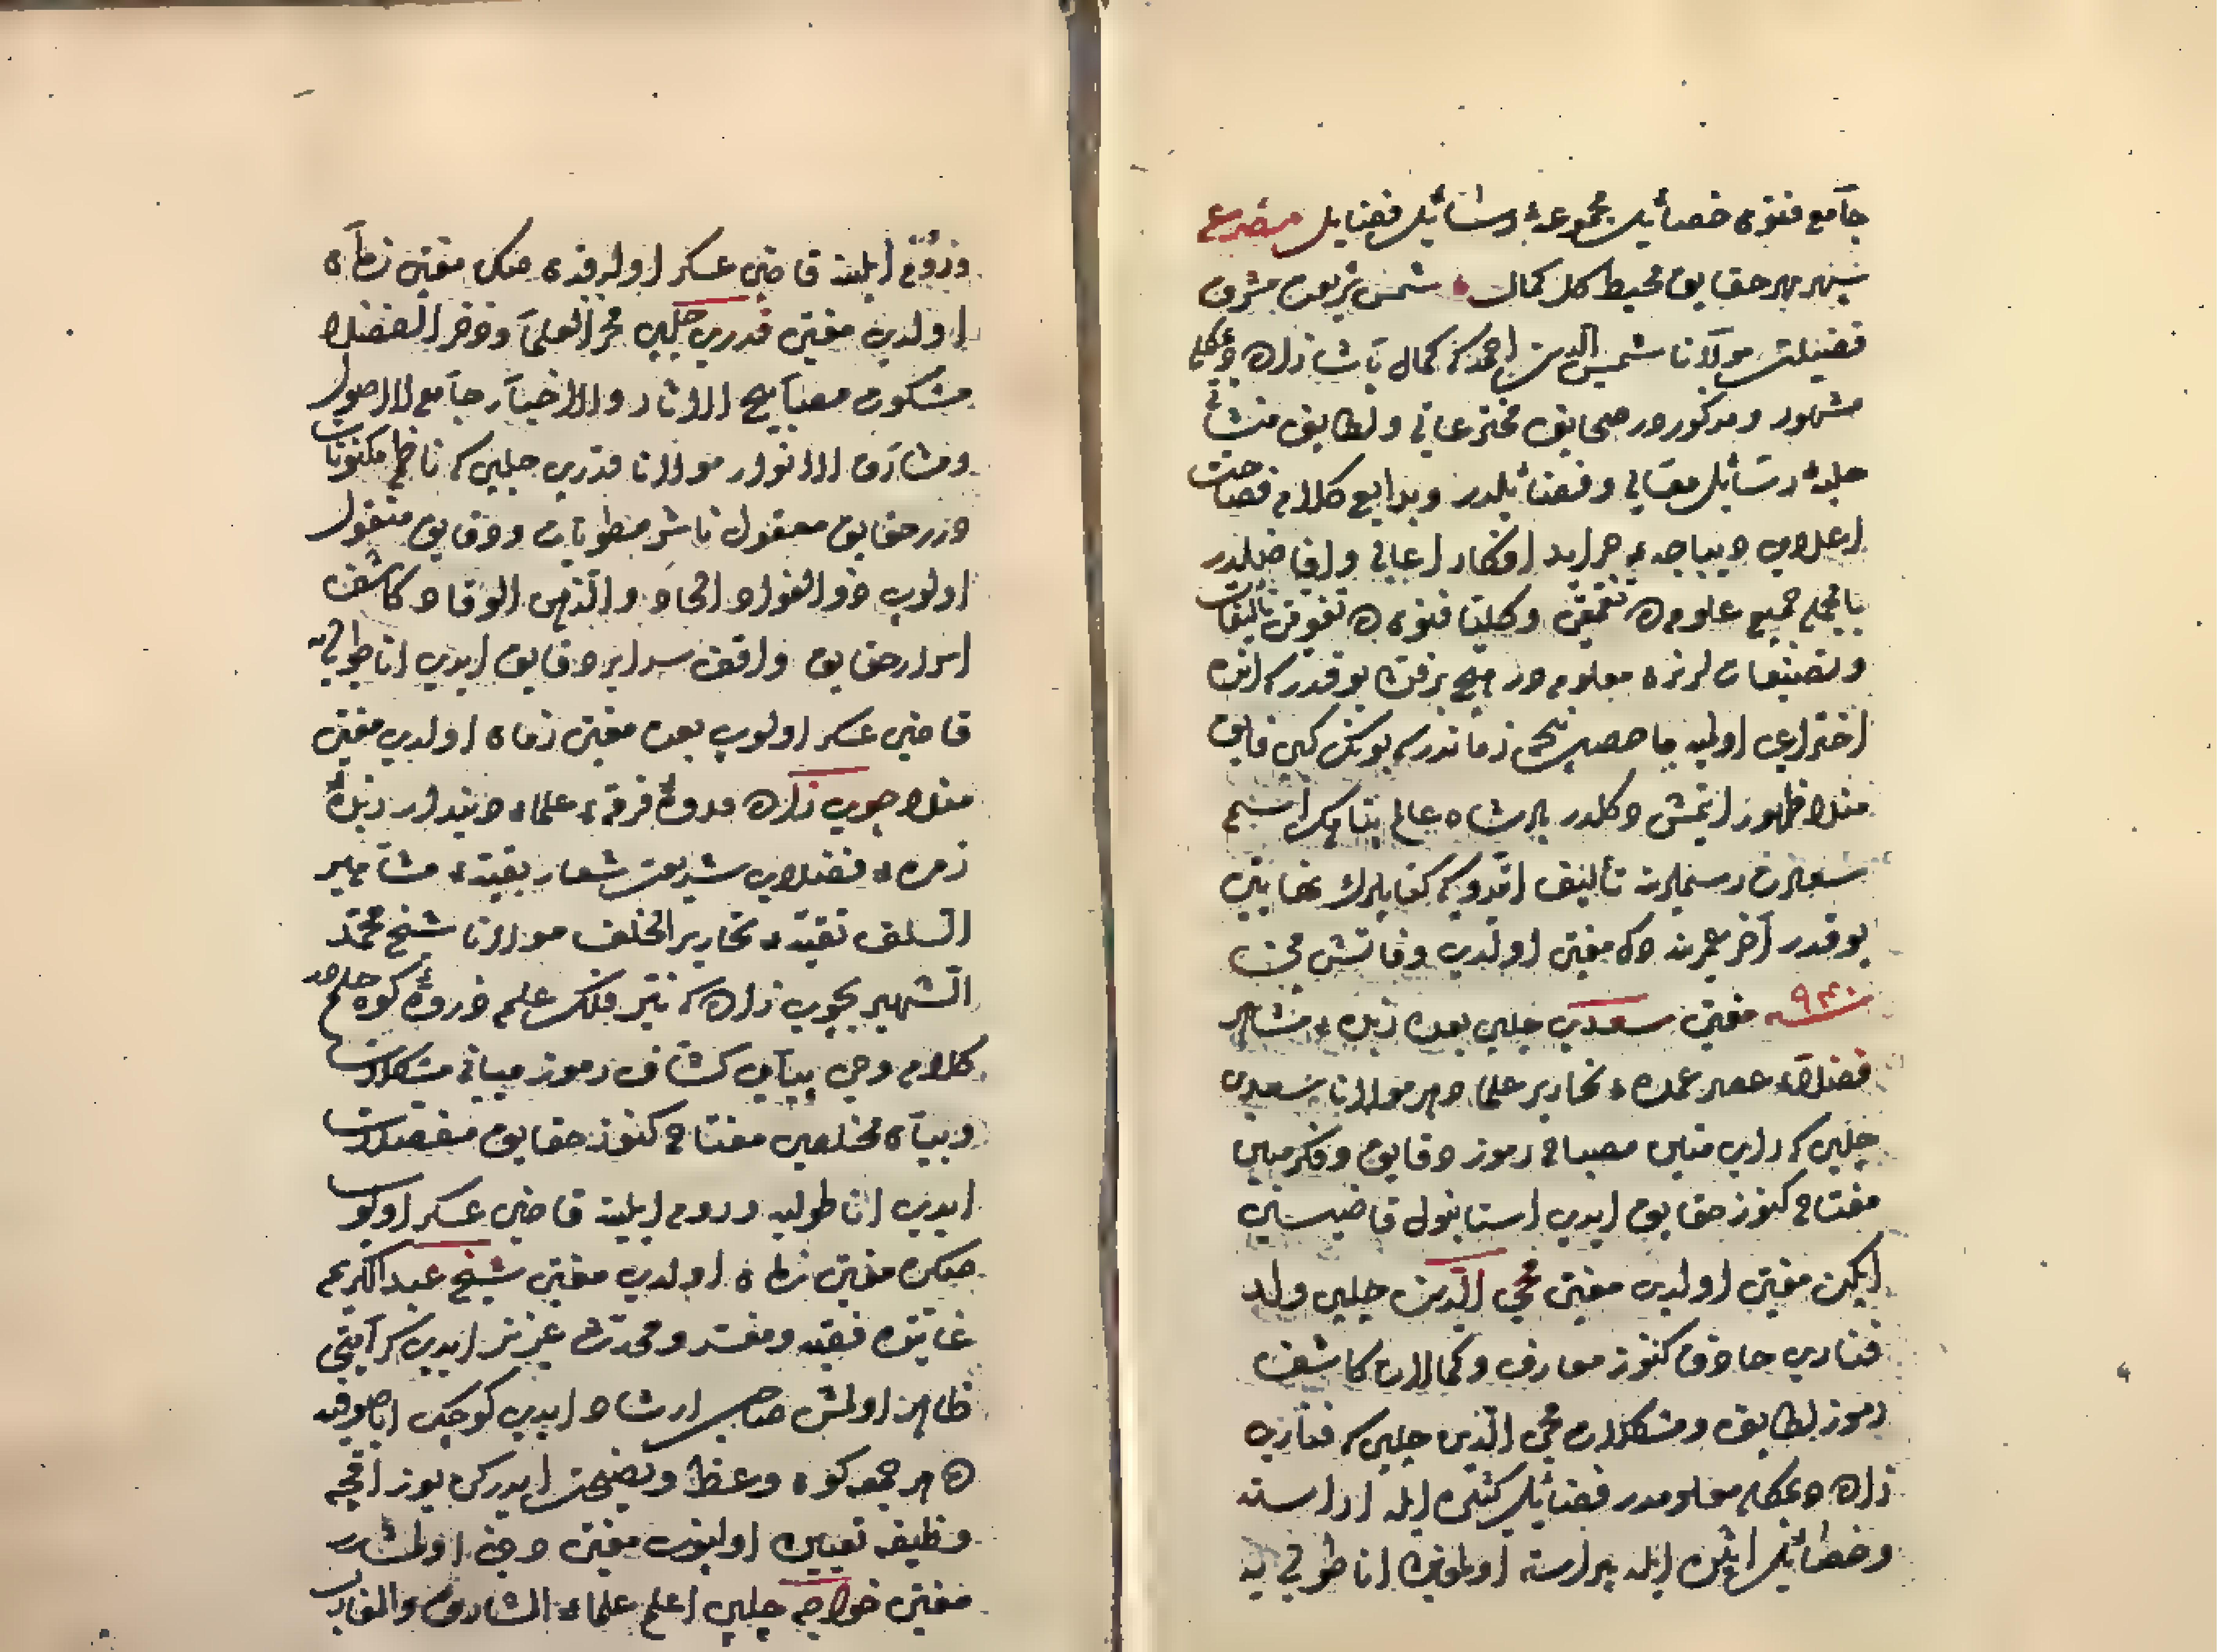 جامع فنون خصائل مجموعۀ رسائل فضایل مصرع
سپهر مهر حقایق محیط کل کمال شمس شریعت مشرق
فضیلت مولانا شمس الدین احمد که کمال پاشا زاده دیمکله
مشهور و مذکوردر صحایف مخترعاتی ولطایف منشآتی
جملۀ رسائل معالی و فضائلدر وبدایع کلام فصاحت
اعلامی دیباجۀ جراید افکار اعالی وافاضلدر
بالجمله جمیع علومده تعمقی وکلیتا فنونده تفوقی تألیفات
وتصنیفات لرندن معلومدر هیچ بر فن یوقدرکه انده
اختراعی اولمیه ماحصل نیجه زماندرکه بونک کبی فایق
منلا ظهور ایتمش دکلدر بر شاه عالم پناهک اسم
شریفن رسملرینه تألیف اتدوکی کتابلرک نهایتی
یوقدر آخر عمرنده دکه مفتی اولدی وفاتش فی
سنه ۹۴۰ مفتی سعدی چلبی بعده زبدۀ مشاهیر
فضلاء عصر عمدۀ نحاریر علماء دهر مولانا سعدی
چلبی که رای متین مصباح رموز دقایق وفکر مبین
مفتاح کنوز حقایق ایدی استانبول قاضیسی
ایکن مفتی اولدی مفتی محی الدین چلبی ولد
فناری حاذق کنوز معارف وکمالات کاشف
رموز لطایف ومشکلات محی الدین چلبی که فناری
زاده دیمکله معلومدر فضائل کثیره ایله اراسته
وخصائل اثیره ایله پیراسته اولمغین اناطولی یه
وروم ایلینه قاضی عسکر اولدقدن صکره مفتی زمان
اولدی مفتی قدری چلبی فخر العلما وذخر الفضلا
مشکوة مصابیح الاثار والاخیار جامع الاصول
ومشارق الانوار مولانا قدری چلبی که ناظم مکنونات
درر حقایق معقول ناشر منطویات دقایق منقول
اولوب ذو الفواد الحاد والذهن الوقاد کاشف
اسرار حقایق واقف سرایر دقایق ایدی اناطولی یه
قاضی عسکر اولوب بعده مفتی زمان اولدی مفتی
منلا چوی زاده قدوۀ فرقۀ علماء دیندار زبدۀ
زمرۀ فضلای شریعت شعار بقیۀ مشاهیر
السلف نقیۀ نحاریر الخلف مولانا شیخ محمد
الشهیر بچوی زاده که نیر فلک علم ذروۀ کوه حلمدر
کلام وحی بیانی کشاف رموز مبانی مشکلات
وبیان مخلصی مفتاح کنوز حقایق مفصلات
ایدی اناطولیه وروم ایلینه قاضی عسکر اولوب
صکره مفتی زمان اولدی مفتی شیخ عبد الکریم
غایتده فقیه ومفسر ومحدث عزیز ایدی کرامتی
ظاهر اولمش صاحب ارشاد ایدی کوچک ایاصوفیه
ده هر جمعه کون وعظ ونصیحت ایدرکن یوز اقچه
وظیفه تعیین اولنوب مفتی دخی اولمشدر
مفتی خواجه چلبی اعلم علماء المشارق والمغارب